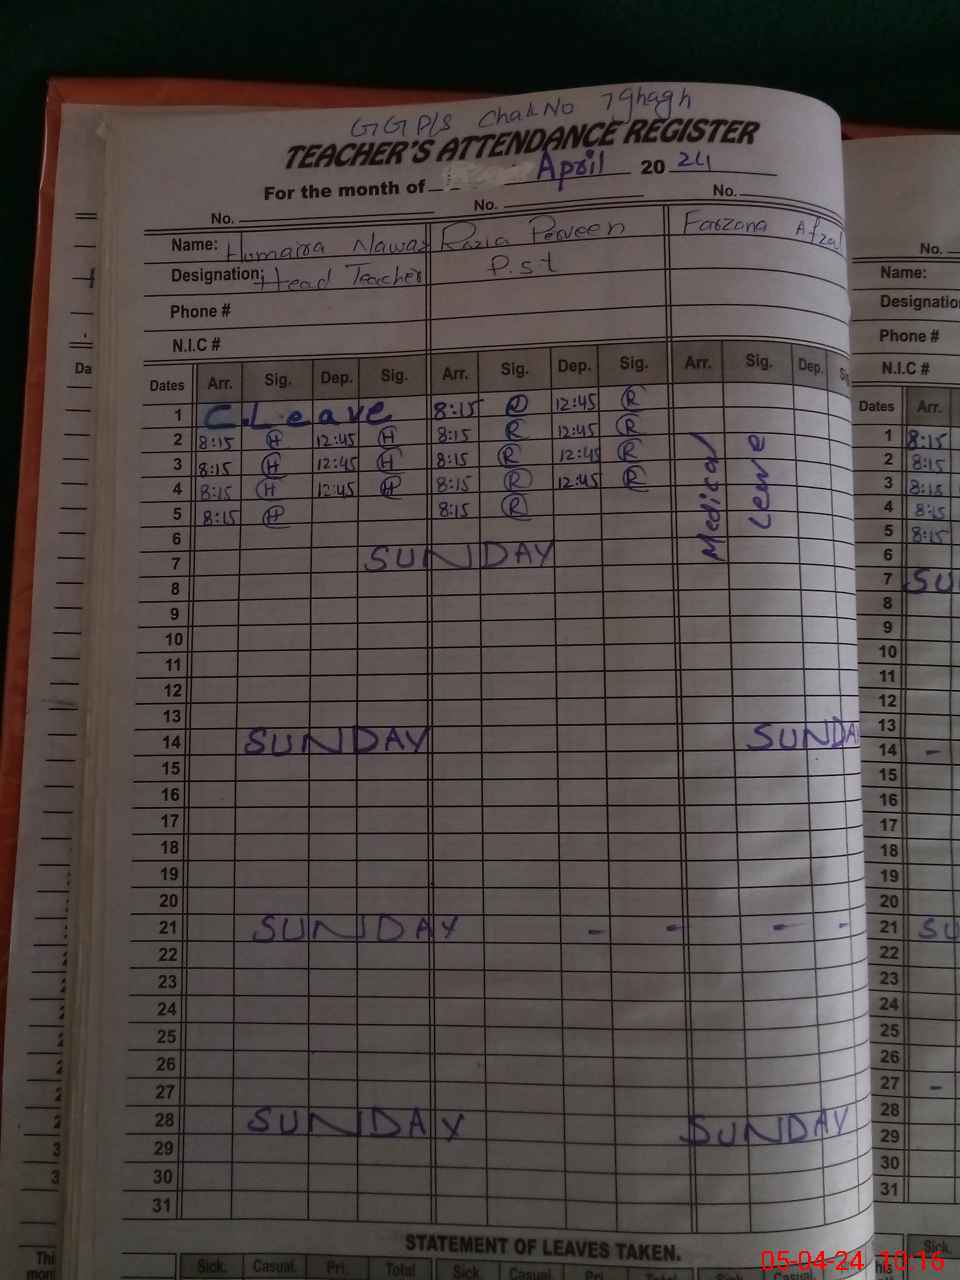 GGP/S Chak No 7 ghagh
TEACHER'S ATTENDANCE REGISTER
For the month of April 20 24
No. No. No.
Name: Humaira Nawaz Razia Perveen Farzana Afzal
Designation: Head Teacher P.s.t
Phone #
N.I.C #
Dates Arr. Sig. Dep. Sig. Arr. Sig. Dep. Sig. Arr. Sig. Dep.
1 C.Leave 8:15 R 12:45 R
2 8:15 H 12:45 H 8:15 R 12:45 R
3 8:15 H 12:45 H 8:15 R 12:45 R
4 8:15 H 12:45 H 8:15 R 12:45 R
5 8:15 H 8:15 R
Medical Leave
6
7 SUNDAY
8
9
10
11
12
13
14 SUNDAY SUNDA
15
16
17
18
19
20
21 SUNDAY - - - -
22
23
24
25
26
27
28 SUNDAY SUNDAY
29
30
31
STATEMENT OF LEAVES TAKEN.
Sick. Casual. Pri. Total Sick. Casual. Pri. Total Sick. Casual.
No.
Name:
Designatio
Phone #
N.I.C #
Dates Arr.
1 8:15
2 8:15
3 8:15
4 8:15
5 8:15
6
7 SU
8
9
10
11
12
13
14 -
15
16
17
18
19
20
21 SU
22
23
24
25
26
27 -
28
29
30
31
Sick
Da
Thi
mon
05-04-24 10:16